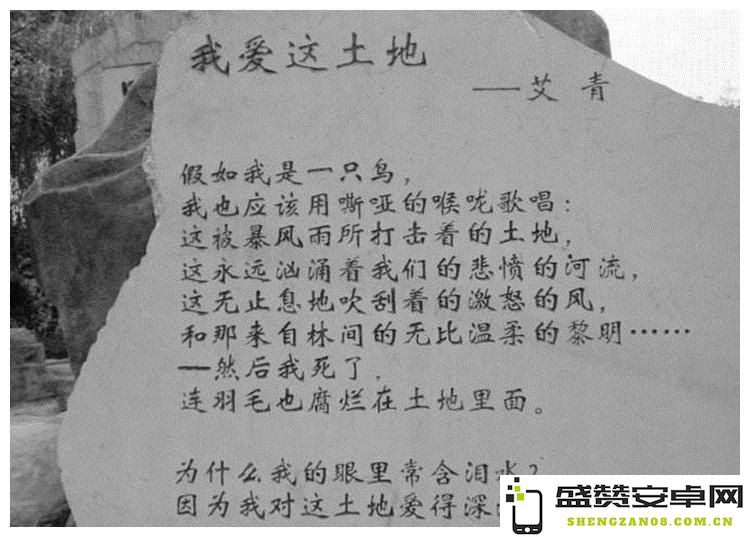 我爱这土地
——艾青
假如我是一只鸟，
我也应该用嘶哑的喉咙歌唱：
这被暴风雨所打击着的土地，
这永远汹涌着我们的悲愤的河流，
这无止息地吹刮着的激怒的风，
和那来自林间的无比温柔的黎明……
——然后我死了，
连羽毛也腐烂在土地里面。
为什么我的眼里常含泪水？
因为我对这土地爱得深
盛赞安卓网
SHENGZAN08.COM.CN